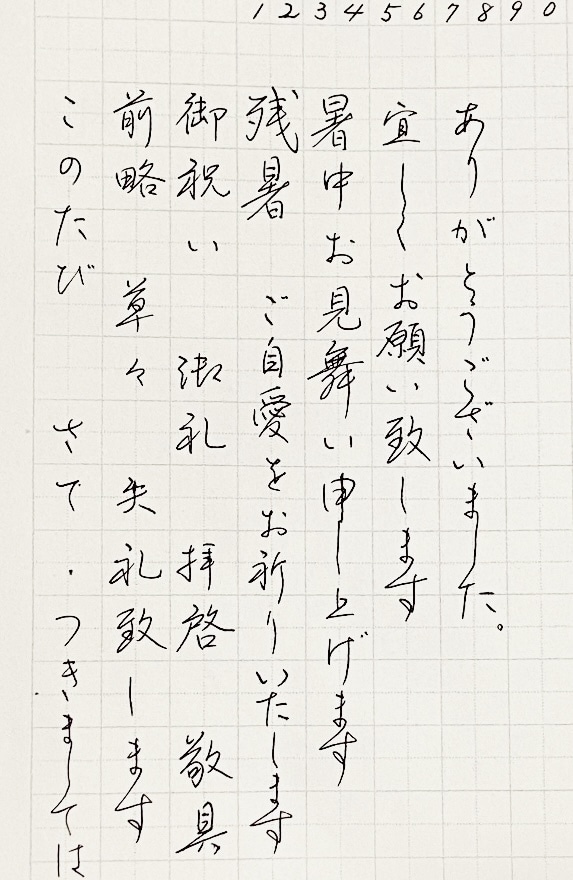 1 2 3 4 5 6 7 8 9 0
ありがとうございました。
宜しくお願い致します
暑中お見舞い申し上げます
残暑 ご自愛をお祈りいたします
御祝い 御礼 拝啓 敬具
前略 草々 失礼致します
このたび さて・つきましては